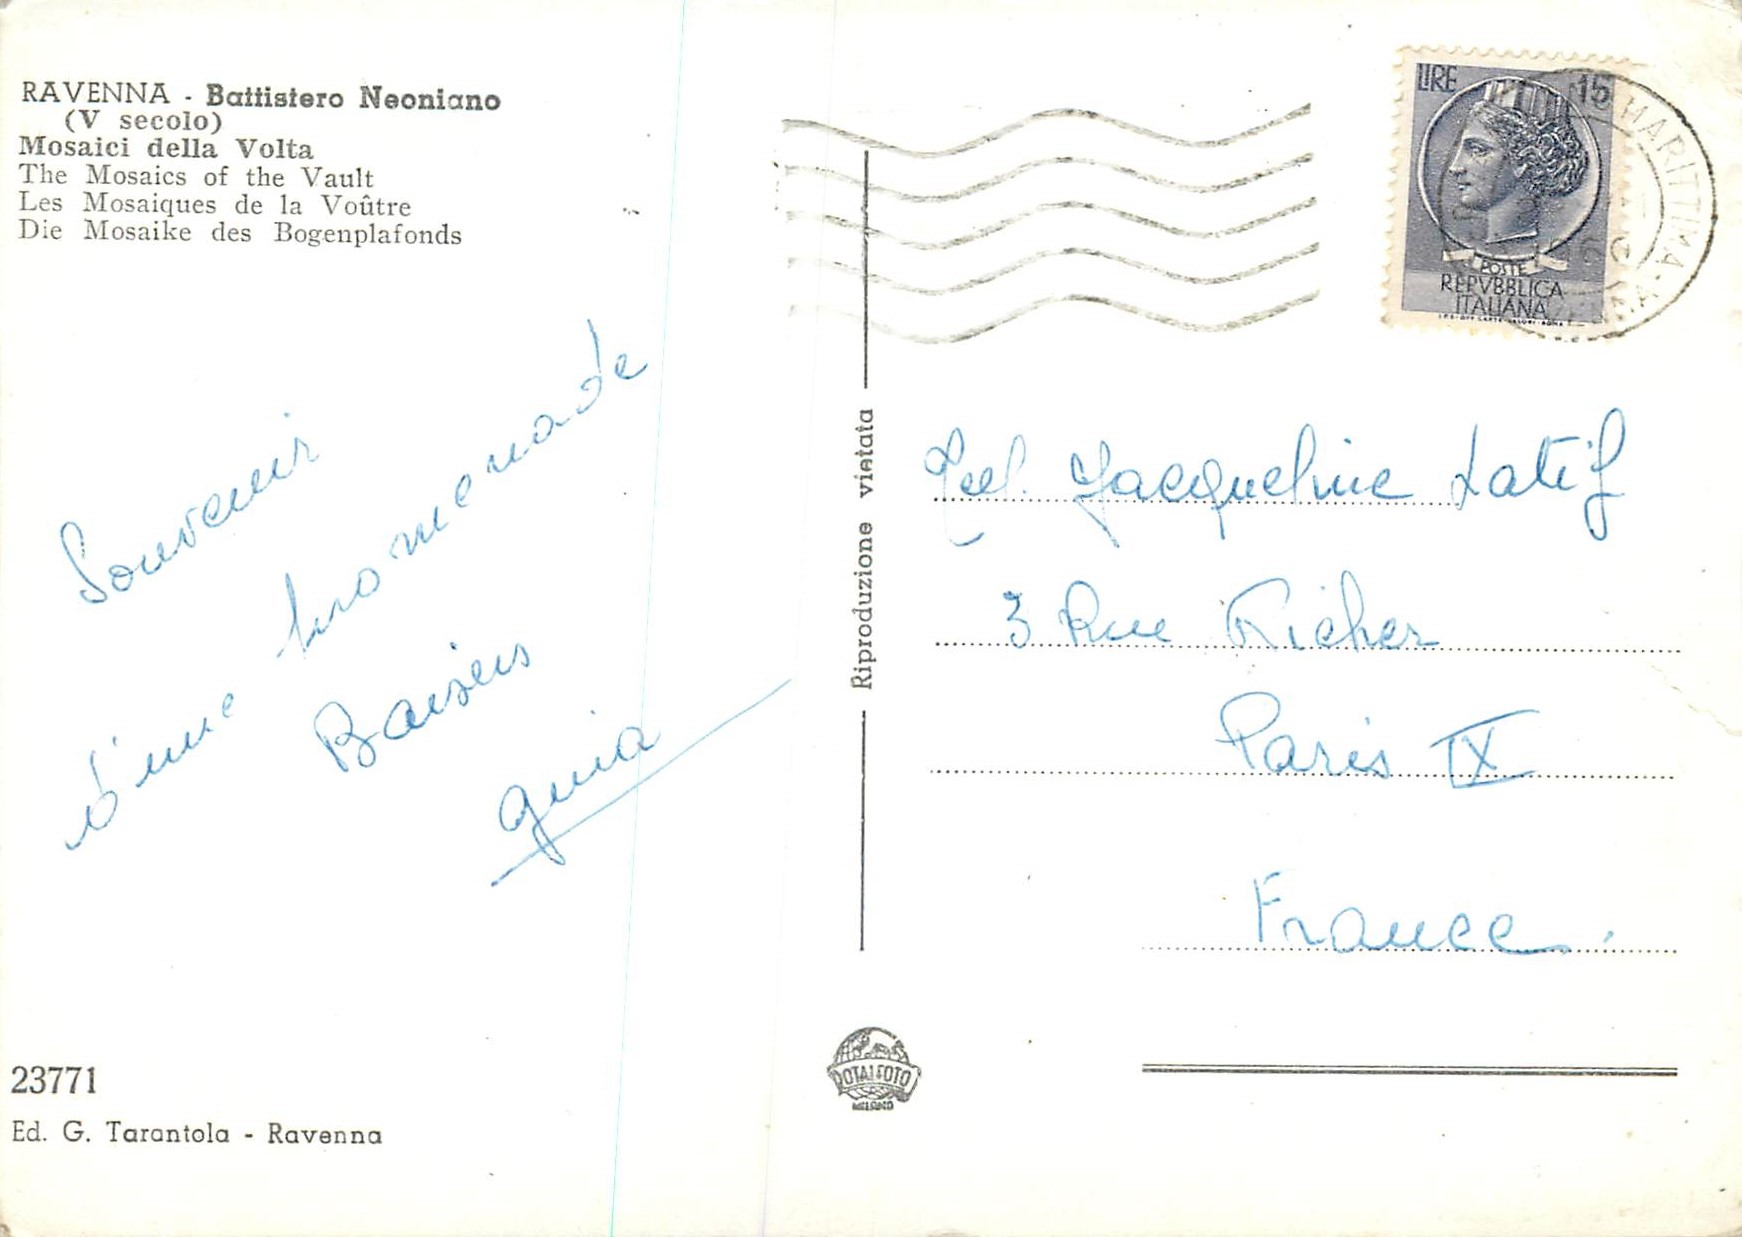 RAVENNA - Battistero Neoniano
(V secolo)
Mosaici della Volta
The Mosaics of the Vault
Les Mosaiques de la Voûtre
Die Mosaike des Bogenplafonds
LIRE 15
POSTE
REPVBBLICA
ITALIANA
MARITTIMA
Souvenir
d'une promenade
Baisers
Riproduzione vietata
Jacqueline Latif
3 Rue Richer
Paris IX
France.
23771
Ed. G. Tarantola - Ravenna
ROTALFOTO
MILANO